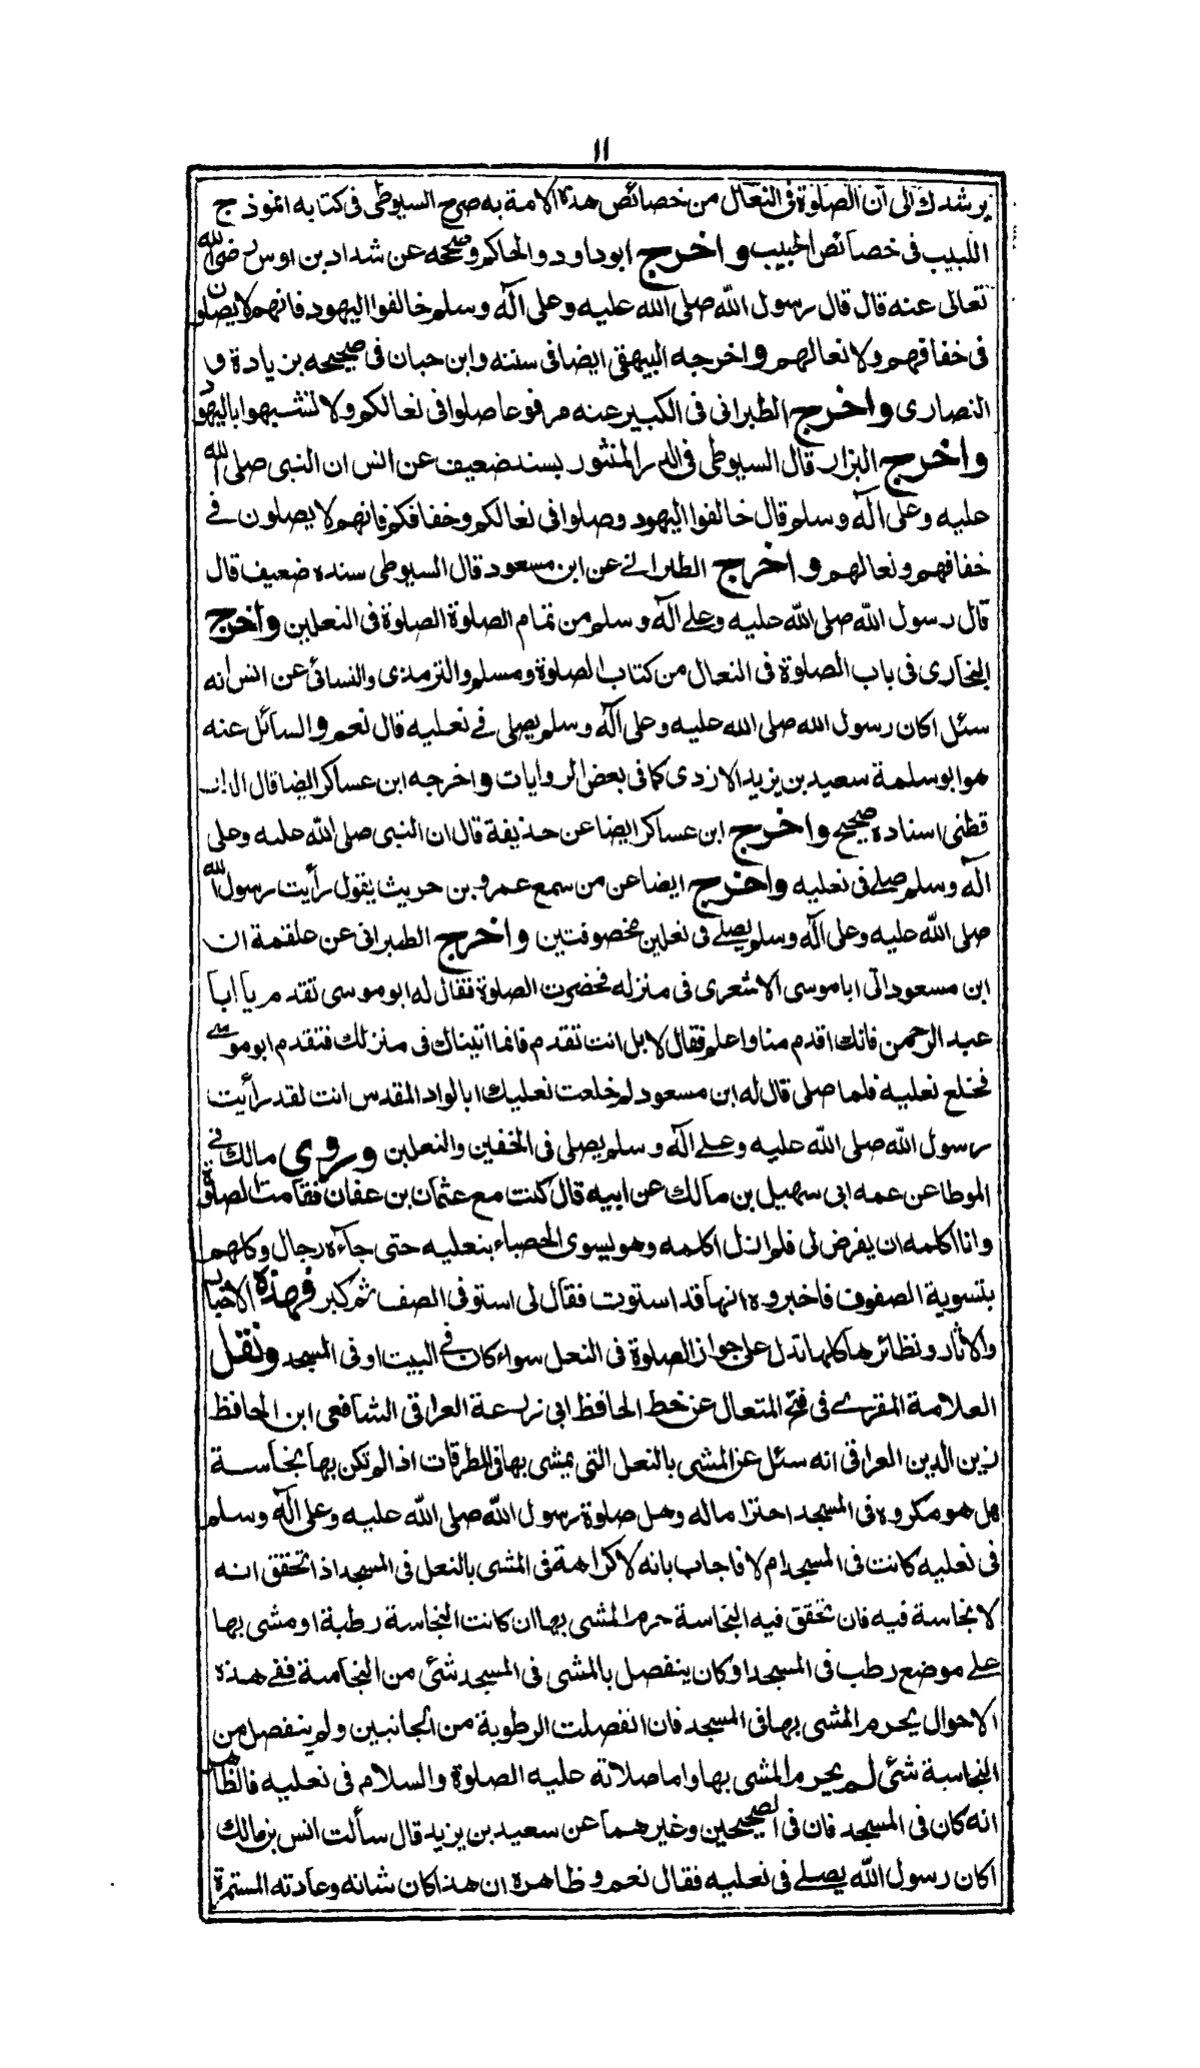 ١١
يرشدك الى ان الصلوة فى النعال من خصائص هذه الامة به صرح السيوطى فى كتابه انموذج
اللبيب فى خصائص الحبيب واخرج ابو داود والحاكم وصححه عن شداد بن اوس رضى الله
تعالى عنه قال قال رسول الله صلى الله عليه وعلى آله وسلم خالفوا اليهود فانهم لا يصلون
فى خفافهم ولا نعالهم واخرجه البيهقى ايضا فى سننه وابن حبان فى صحيحه بزيادة و
النصارى واخرج الطبرانى فى الكبير عنه مرفوعا صلوا فى نعالكم ولا تتشبهوا باليهود
واخرج البزار قال السيوطى فى الدر المنثور بسند ضعيف عن انس ان النبى صلى الله
عليه وعلى آله وسلم قال خالفوا اليهود وصلوا فى نعالكم وخفافكم فانهم لا يصلون فى
خفافهم ونعالهم واخرج الطبرانى عن ابن مسعود قال السيوطى سنده ضعيف قال
قال رسول الله صلى الله عليه وعلى آله وسلم من تمام الصلوة الصلوة فى النعلين واخرج
البخارى فى باب الصلوة فى النعال من كتاب الصلوة ومسلم والترمذى والنسائى عن انس انه
سئل اكان رسول الله صلى الله عليه وعلى آله وسلم يصلى فى نعليه قال نعم والسائل عنه
هو ابو سلمة سعيد بن يزيد الازدى كما فى بعض الروايات واخرجه ابن عساكر ايضا قال الدار
قطنى اسناده صحيح واخرج ابن عساكر ايضا عن حذيفة قال ان النبى صلى الله عليه وعلى
آله وسلم صلى فى نعليه واخرج ايضا عن من سمع عمرو بن حريث يقول رأيت رسول الله
صلى الله عليه وعلى آله وسلم يصلى فى نعلين مخصوفتين واخرج الطبرانى عن علقمة ان
ابن مسعود اتى ابا موسى الاشعرى فى منزله فحضرت الصلوة فقال له ابو موسى تقدم يا ابا
عبد الرحمن فانك اقدم منا واعلم فقال لا بل انت تقدم فانما اتيناك فى منزلك فتقدم ابو موسى
فخلع نعليه فلما صلى قال له ابن مسعود لم خلعت نعليك ابالواد المقدس انت لقد رأيت
رسول الله صلى الله عليه وعلى آله وسلم يصلى فى الخفين والنعلين وروى مالك فى
الموطا عن عمه ابى سهيل بن مالك عن ابيه قال كنت مع عثمان بن عفان فقامت الصلوة
وانا اكلمه ان يفرض لى فلم ازل اكلمه وهو يسوى الحصباء بنعليه حتى جآءه رجال وكلهم
بتسوية الصفوف فاخبروه انها قد استوت فقال لى استو فى الصف ثم كبر فهذه الاخبار
والاثار ونظائرها كلها تدل على جواز الصلوة فى النعل سواء كان فى البيت او فى المسجد ونقل
العلامة المقرى فى فتح المتعال عن خط الحافظ ابى زرعة العراقى الشافعى ابن الحافظ
زين الدين العراقى انه سئل عن المشى بالنعل التى يمشى بها فى الطرقات اذا لم تكن بها نجاسة
هل هو مكروه فى المسجد احتراما له وهل صلوة رسول الله صلى الله عليه وعلى آله وسلم
فى نعليه كانت فى المسجد ام لا فاجاب بانه لا كراهة فى المشى بالنعل فى المسجد اذا تحقق انه
لا نجاسة فيه فان تحقق فيه النجاسة حرم المشى بها ان كانت النجاسة رطبة او مشى بها
على موضع رطب فى المسجد او كان ينفصل بالمشى فى المسجد شئ من النجاسة ففى هذه
الاحوال يحرم المشى بها فى المسجد فان انفصلت الرطوبة من الجانبين ولم ينفصل من
النجاسة شئ لم يحرم المشى بها واما صلاته عليه الصلوة والسلام فى نعليه فالظاهر
انه كان فى المسجد فان فى الصحيحين وغيرهما عن سعيد بن يزيد قال سألت انس بن مالك
اكان رسول الله يصلى فى نعليه فقال نعم وظاهره ان هذا كان شانه وعادته المستمرة